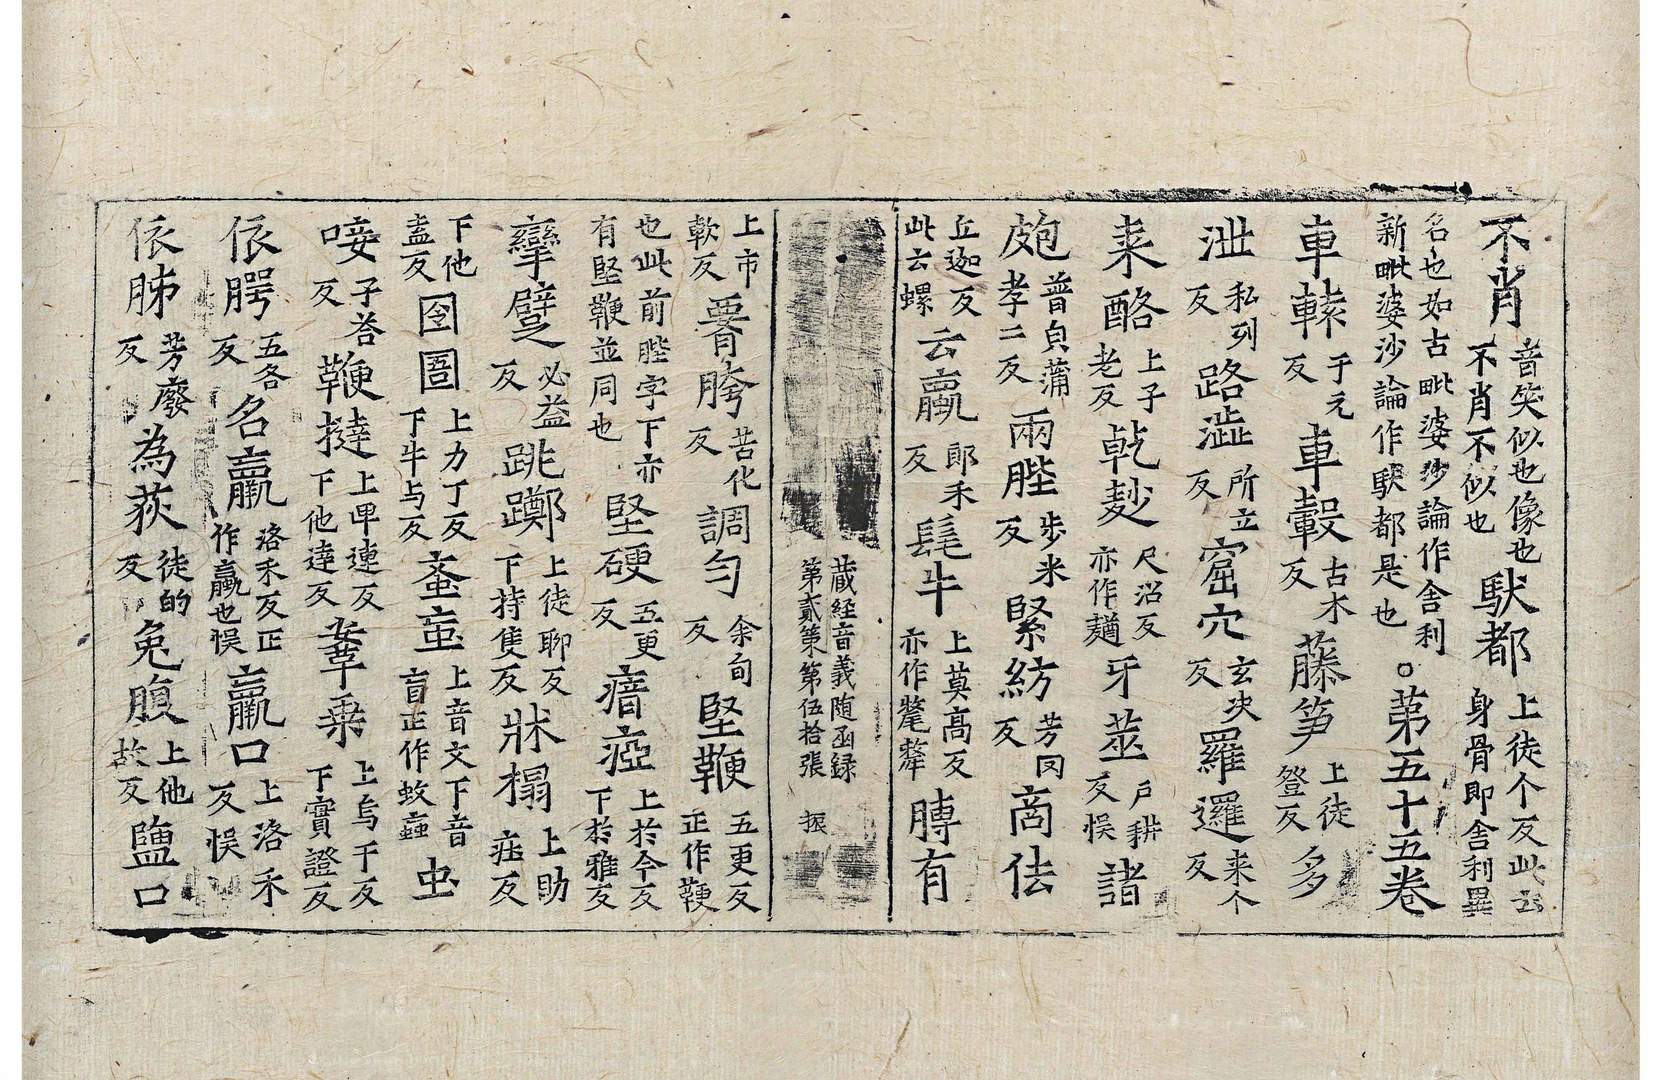 不肖音笑似也像也不肖不似也䭾都上徒个反此云身骨即舎利異
名也如古毗婆沙論作舎利新毗婆沙論作䭾都是也。第五十五卷
車轅于元反車轂古木反藤笋上徒登反多
泄私列反路澁所立反窟穴玄决反羅邏来个反
来酪上子老反乹麨尺沼反亦作𪍑牙並户耕反悮諸
皰普皃蒲孝二反兩䏶步米反緊紡芳罔反商佉
丘迦反此云螺云蠃郎禾反髦牛上莫髙反亦作氂犛膞有
藏経音義随函録第貳第第伍拾張 振
上市軟反䯊胯苦化反調勻余旬反堅鞕五更反正作鞕
也此前䏶字下亦有堅鞕並同也堅硬五更反瘖瘂上於今反下於雅反
攣躄必益反跳躑上徒聊反下持隻反牀榻上助疰反
下他盍反囹圄上力丁反下牛与反蚉䖟上音文下音盲正作蚊䖟虫
唼子荅反鞭撻上甲連反下他達反羍乗上烏于反下實證反
依腭五各反名蠃洛禾反正作蠃也悮蠃口上洛禾反悮
依胏芳廢反為荻徒的反兔腹上他故反鹽口